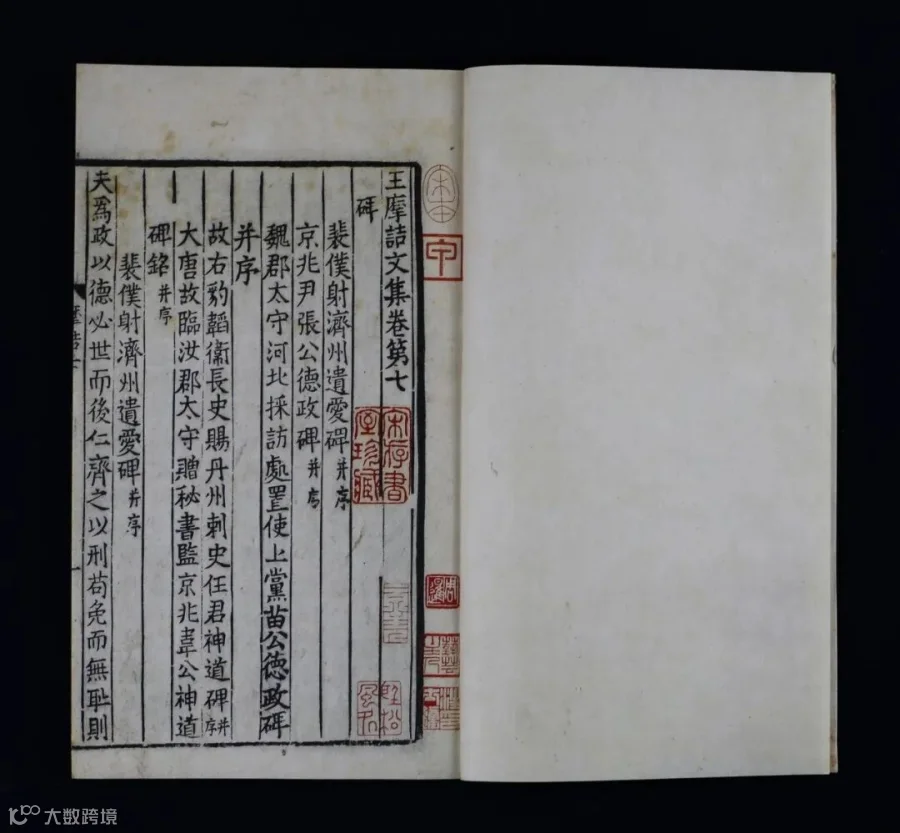 王摩詰文集卷第七
碑
裴僕射濟州遺愛碑并序
京兆尹張公德政碑并序
魏郡太守河北採訪處置使上黨苗公德政碑
并序
故右豹韜衛長史賜丹州刺史任君神道碑并序
大唐故臨汝郡太守贈秘書監京兆韋公神道
碑銘并序
裴僕射濟州遺愛碑并序
夫為政以德必世而後仁齊之以刑苟免而無耻則
宋本
宋存書室珍藏
周暹
大数跨境